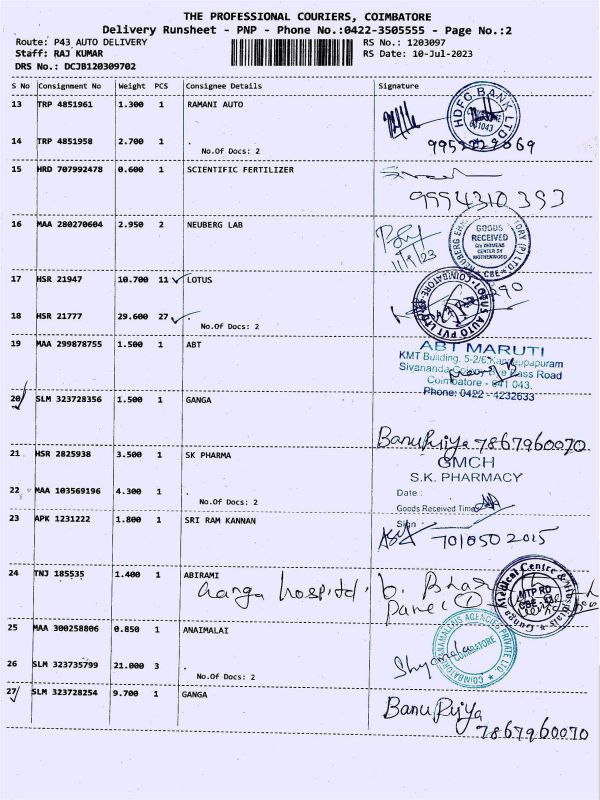 THE PROFESSIONAL COURIERS, COIMBATORE
Delivery Runsheet - PNP - Phone No.:0422-3505555 - Page No.:2
Route: P43 AUTO DELIVERY RS No.: 1203097
Staff: RAJ KUMAR RS Date: 10-Jul-2023
DRS No.: DCJB120309702
S No Consignment No Weight PCS Consignee Details Signature
13 TRP 4851961 1.300 1 RAMANI AUTO
HDFC BANK LTD
641043
14 TRP 4851958 2.700 1
No.Of Docs: 2
15 HRD 707992478 0.600 1 SCIENTIFIC FERTILIZER
9994310393
16 MAA 280270604 2.950 2 NEUBERG LAB
GOODS
RECEIVED
C/o WOMENS
CENTER BY
MOTHERHOOD
CBE
17 HSR 21947 10.700 11 LOTUS
COIMBATORE LOTUS AUTO PVT LTD
18 HSR 21777 29.600 27
No.Of Docs: 2
19 MAA 299878755 1.500 1 ABT
ABT MARUTI
KMT Building, 5-2/6,
Sivananda Colony, Bye Pass Road
Coimbatore - 641 043.
Phone: 0422 - 4232633
20 SLM 323728356 1.500 1 GANGA
BanuPriya 7867960070
21 HSR 2825938 3.500 1 SK PHARMA
GMCH
S.K. PHARMACY
22 MAA 103569196 4.300 1
Date :
No.Of Docs: 2
Goods Received Time
Sign
23 APK 1231222 1.800 1 SRI RAM KANNAN
7010502015
24 TNJ 185535 1.400 1 ABIRAMI
Ganga hospital,
Ganga Medical Centre & Hospitals
MTP RD
25 MAA 300258806 0.850 1 ANAIMALAI
ANAMALAIS AGENCIES PRIVATE LTD
COIMBATORE
Shyamala
26 SLM 323735799 21.000 3
No.Of Docs: 2
27 SLM 323728254 9.700 1 GANGA
BanuPriya
7867960070